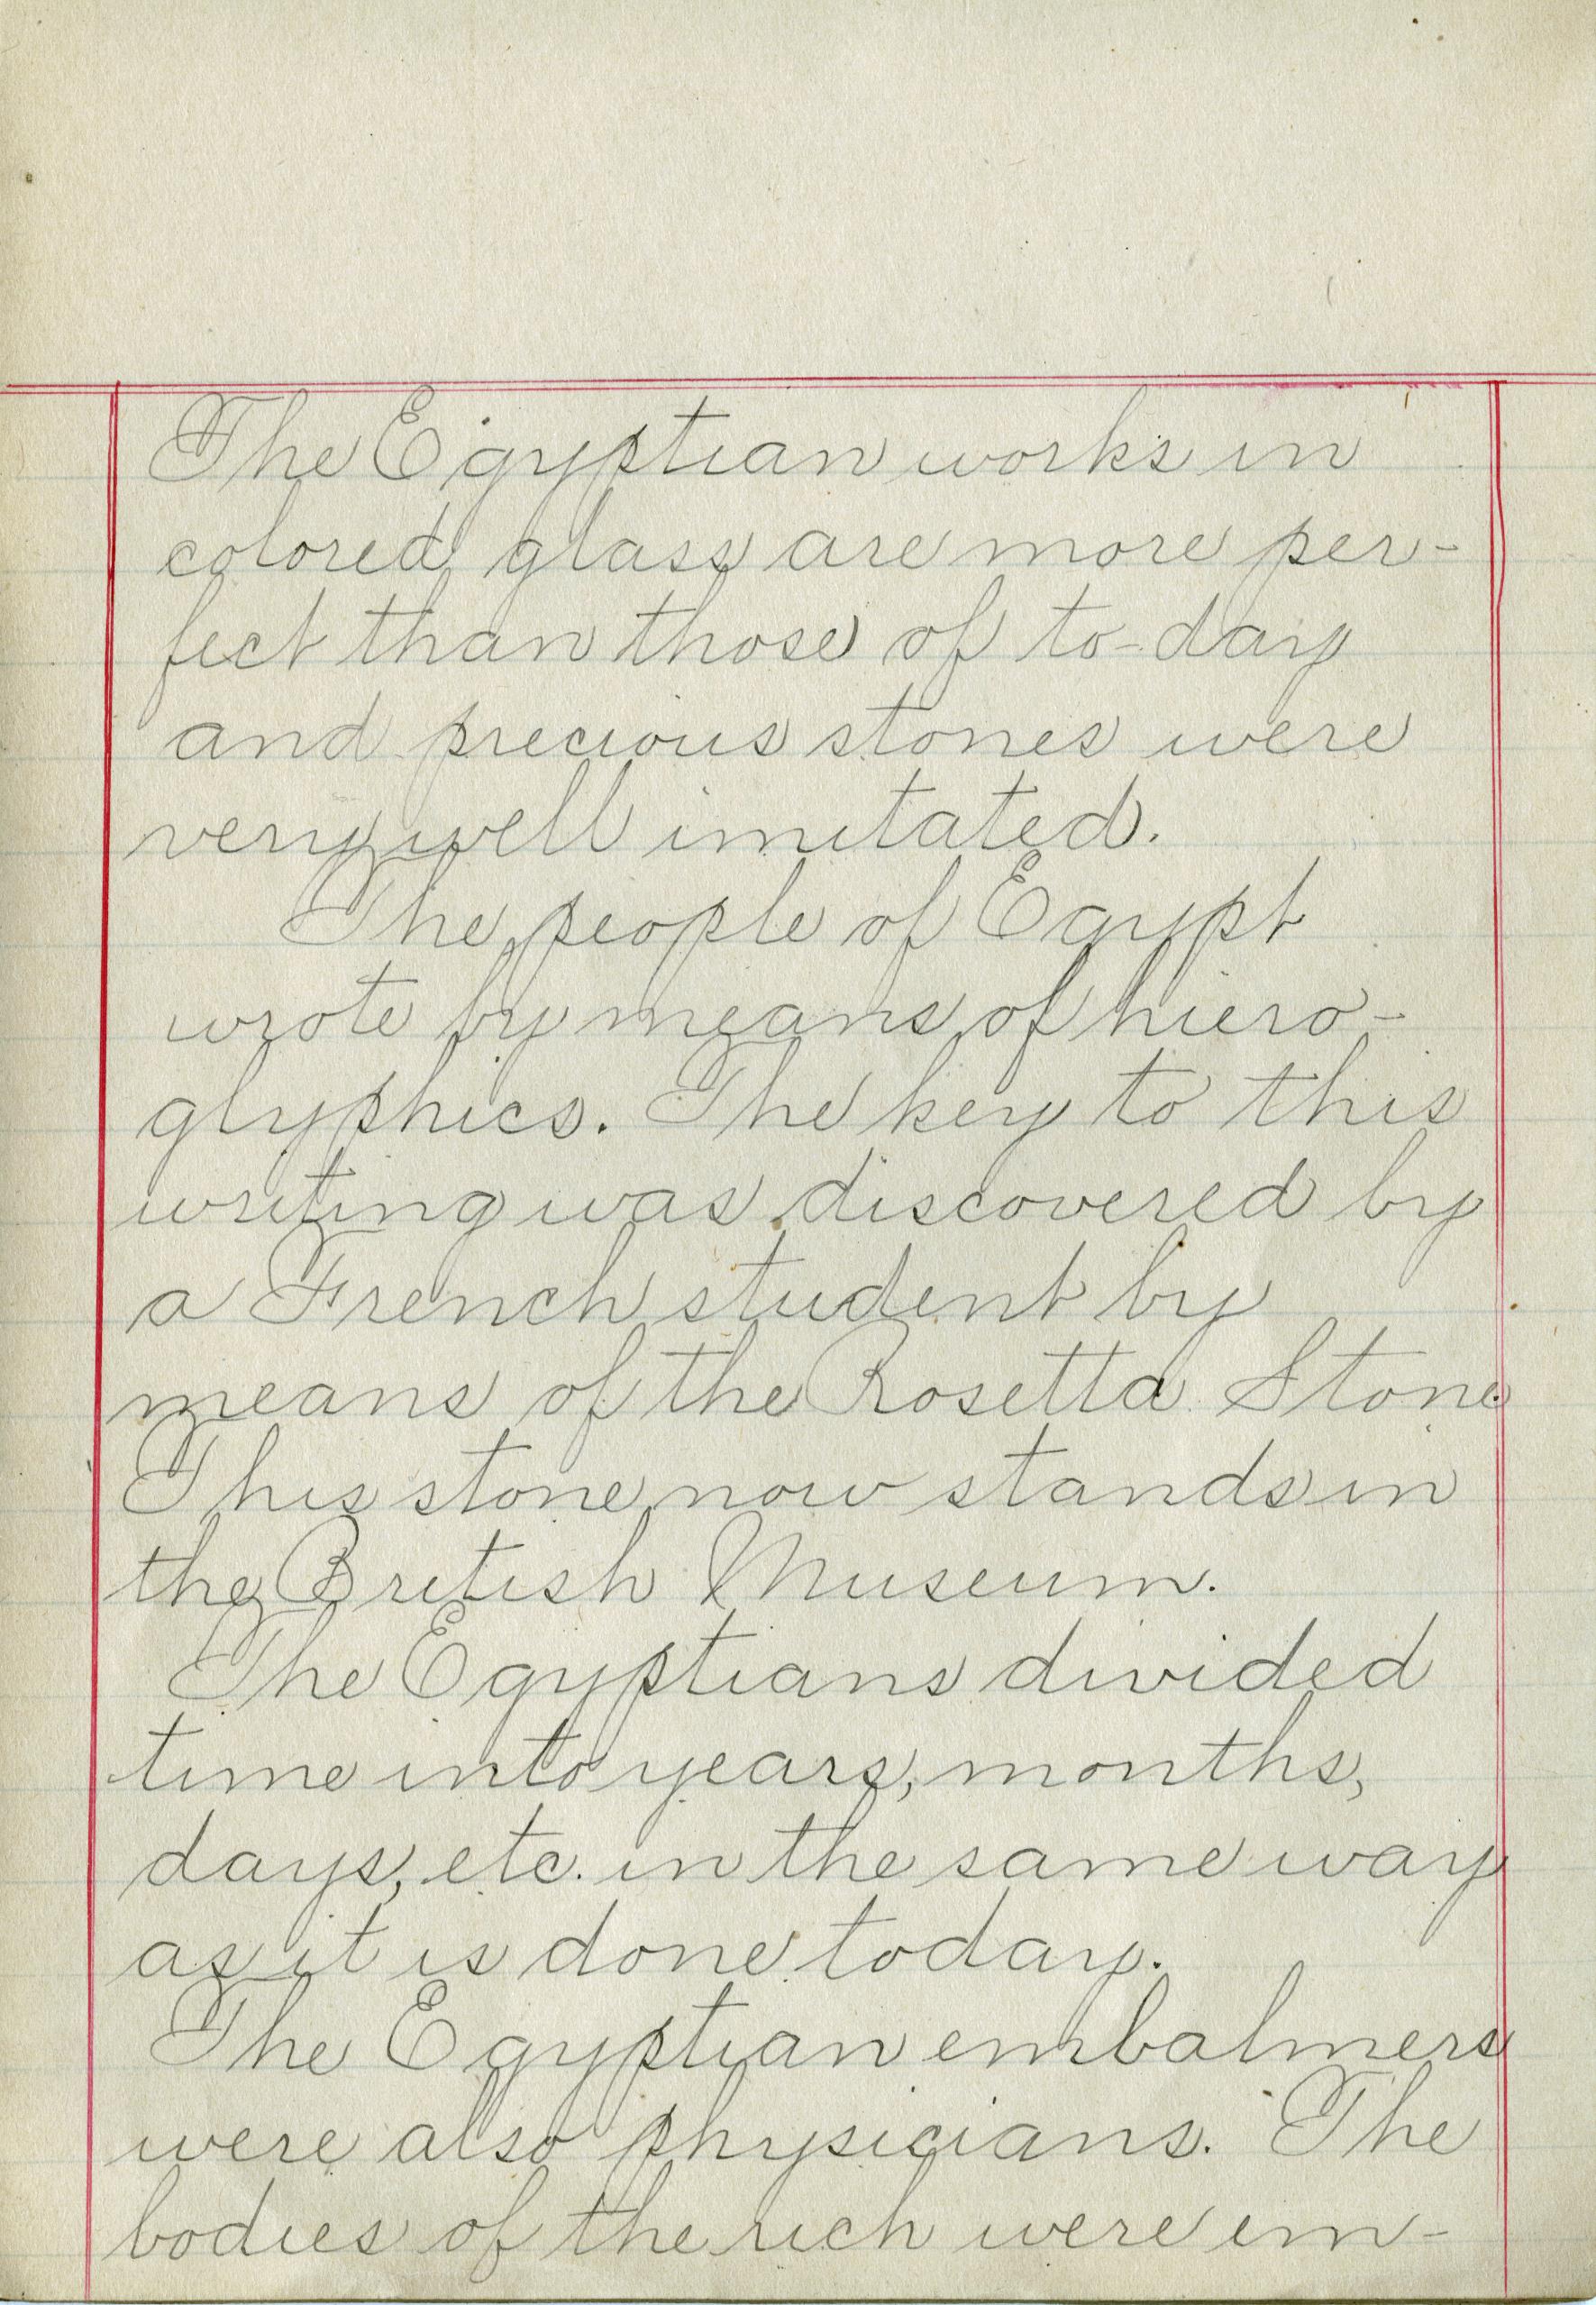 The Egyptian works in
colored glass are more per-
fect than those of to-day
and precious stones were
very well imitated.
The people of Egypt
wrote by means of hiero-
glyphics. The key to this
writing was discovered by
a French student by
means of the Rosetta Stone
This stone now stands in
the British Museum.
The Egyptians divided
time into years, months,
days, etc. in the same way
as it is done today.
The Egyptian embalmers
were also physicians. The
bodies of the rich were em-